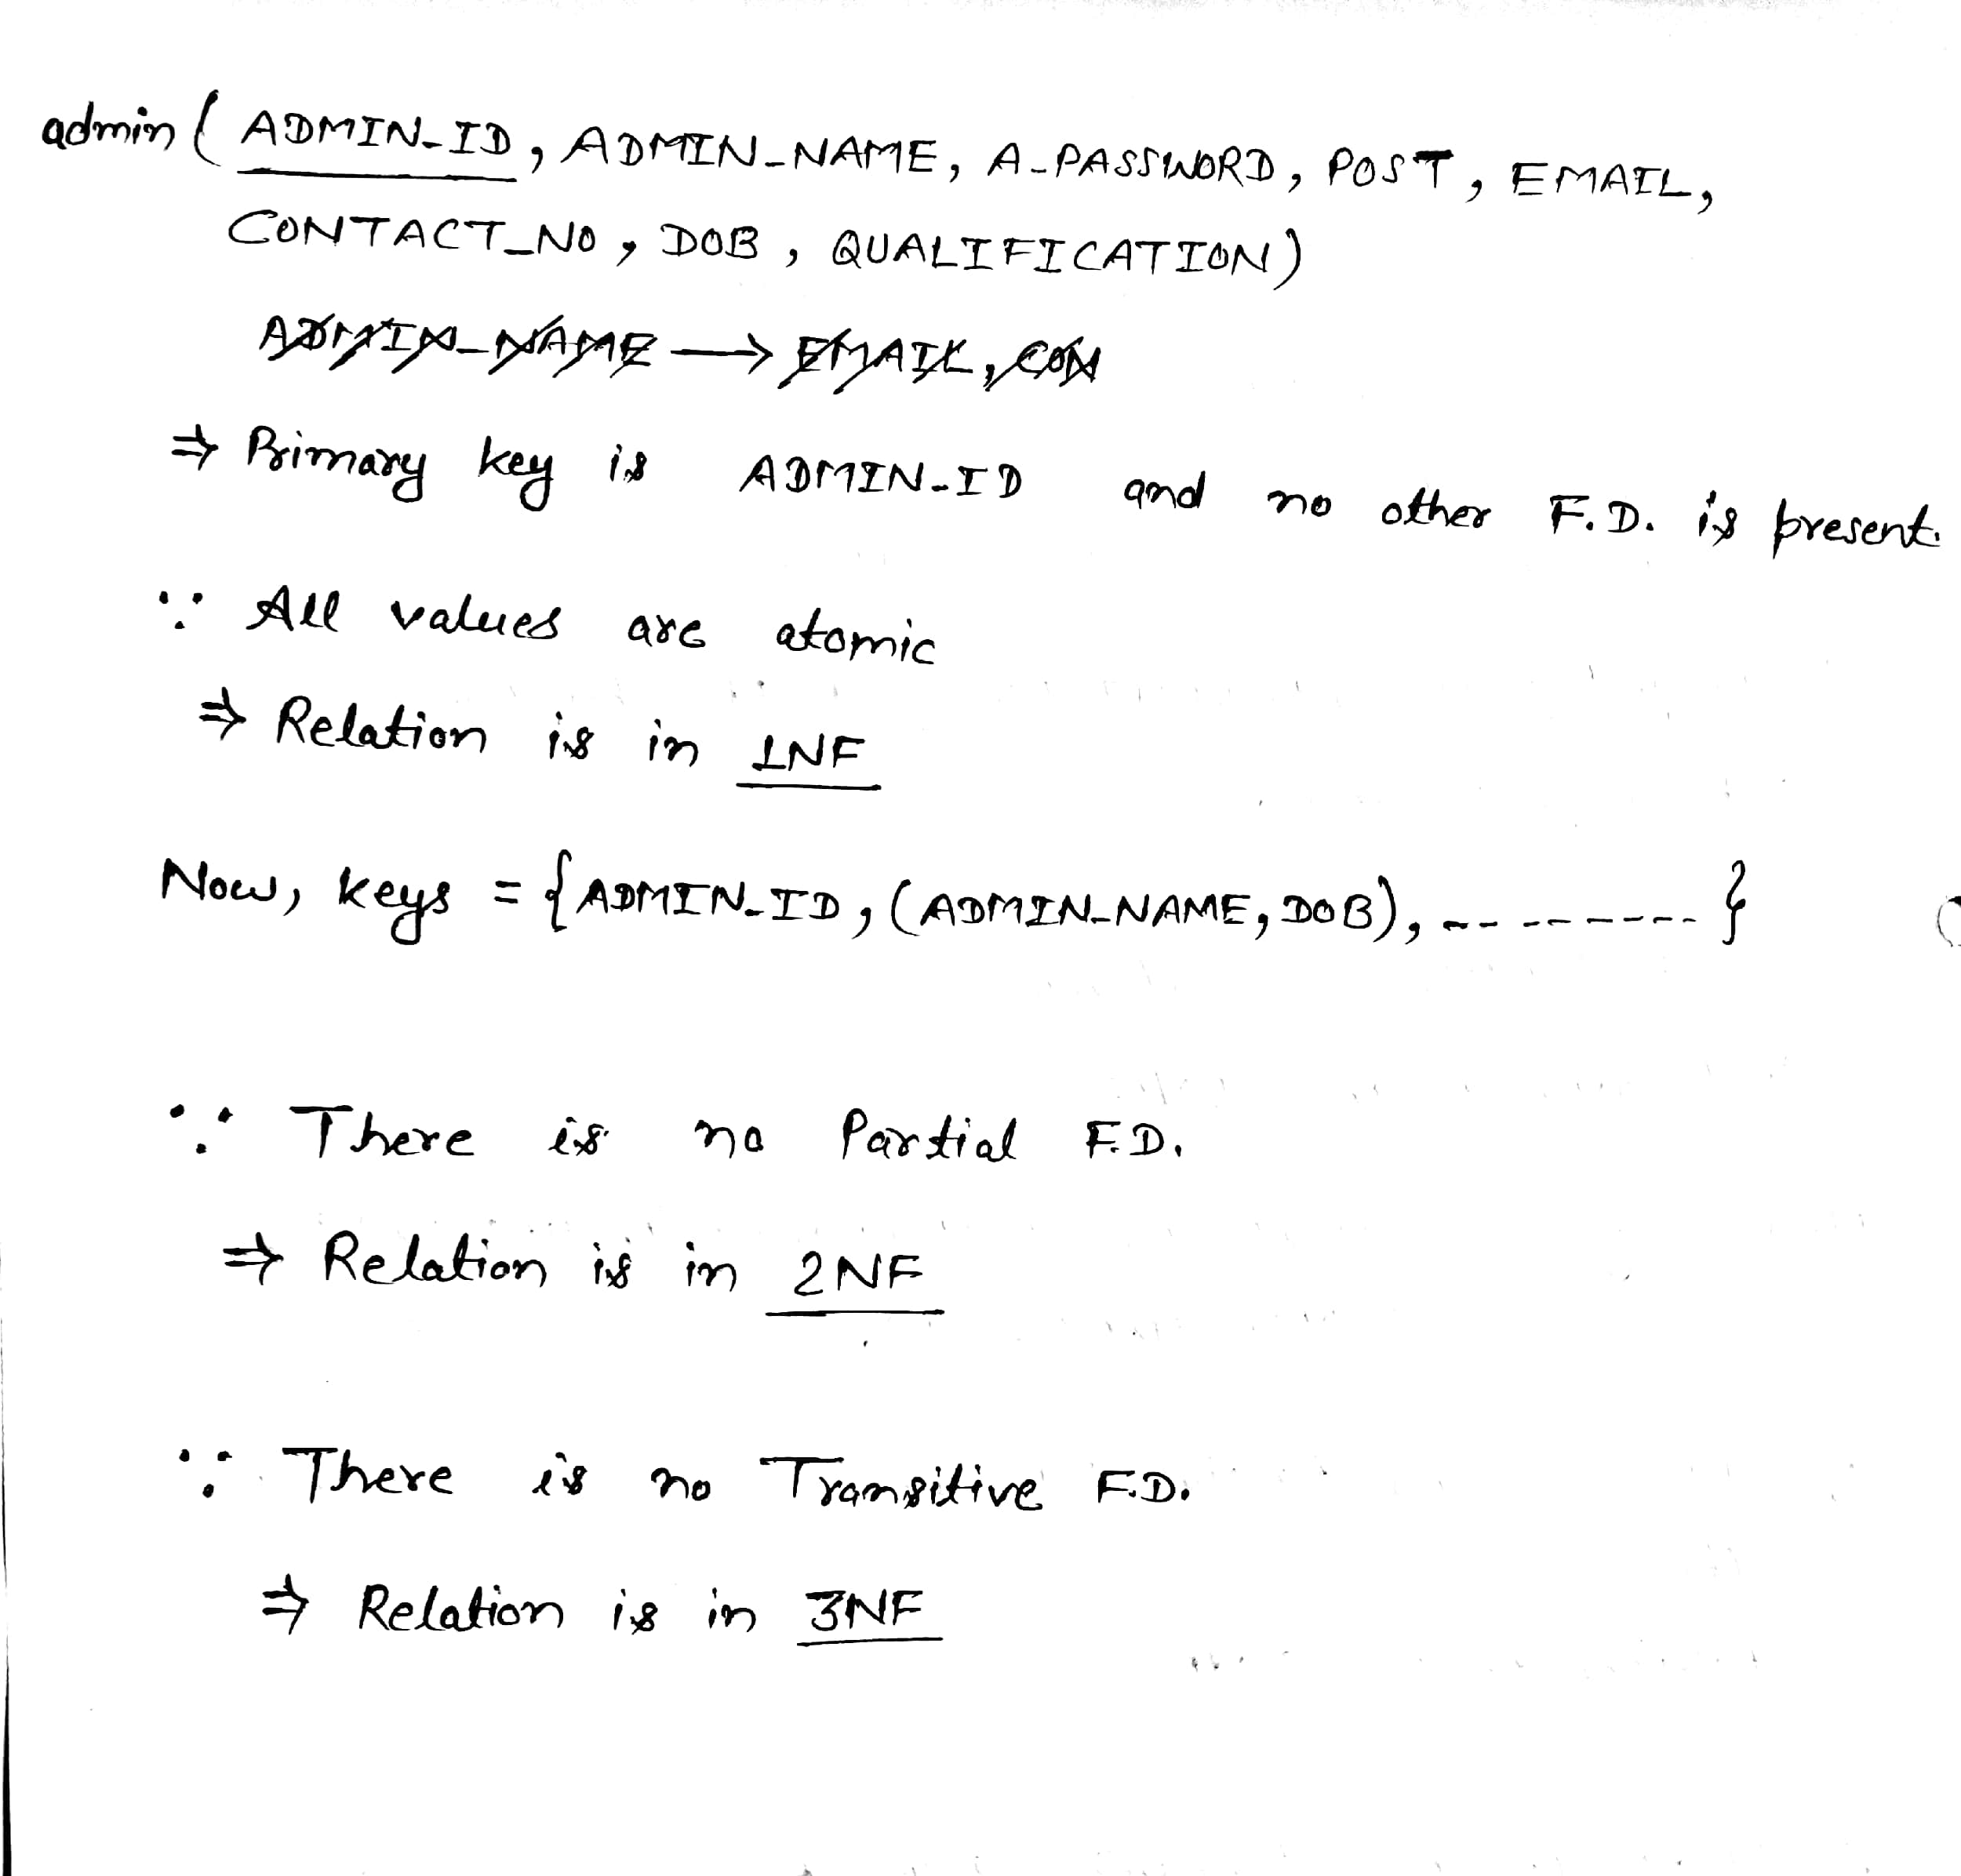 admin ( ADMIN_ID, ADMIN_NAME, A_PASSWORD, POST, EMAIL,
CONTACT_NO, DOB, QUALIFICATION)
ADMIN_NAME → EMAIL, CON
⇒ Primary key is ADMIN_ID and no other F.D. is present.
∵ All values are atomic
⇒ Relation is in 1NF
Now, keys = {ADMIN_ID, (ADMIN_NAME, DOB), ---------}
∵ There is no Partial F.D.
⇒ Relation is in 2NF
∵ There is no Transitive F.D.
⇒ Relation is in 3NF